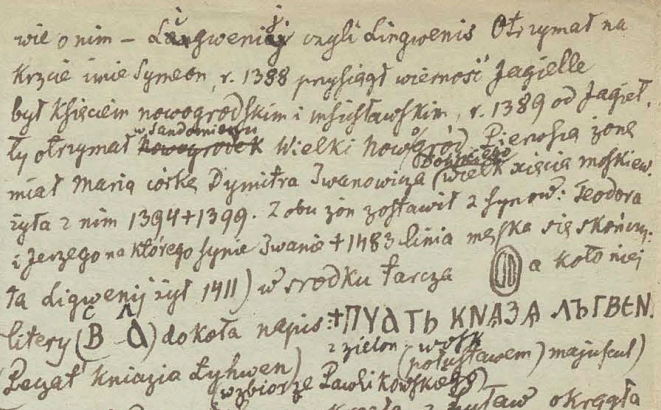 wie o nim – Lingwenij czyli Lingwenis Otrzymał na
Krzcie imie Symeon, r. 1388 przysiągł wierność Jagielle
był Księciem nowogrodskim i mścisławskim, r. 1389 od Jagieł.
w Sandomierzu
ły otrzymał Nowogrodek Wielki Nowogród Pierwszą żonę
miał Marią córkę Dymitra Iwanowicza (wielk xięcia moskiew.
żyła z nim 1394 + 1399. Z obu żon zostawił 2 synów: Teodora
i Jerzego na którego synie Iwanie + 1483 linia męska się skończy:
ła Ligwenij żył 1411) w srodku tarcza a koło niej
litery (B A) dokoła napis: +ПУАТЬ КNАЗА ЛЪГВЕN.
z zielon. wosk
(Pečat Kniazia Łyhwen) (połustawem) majuscul)
w zbiorze Pawlikowskiego)
okrągła